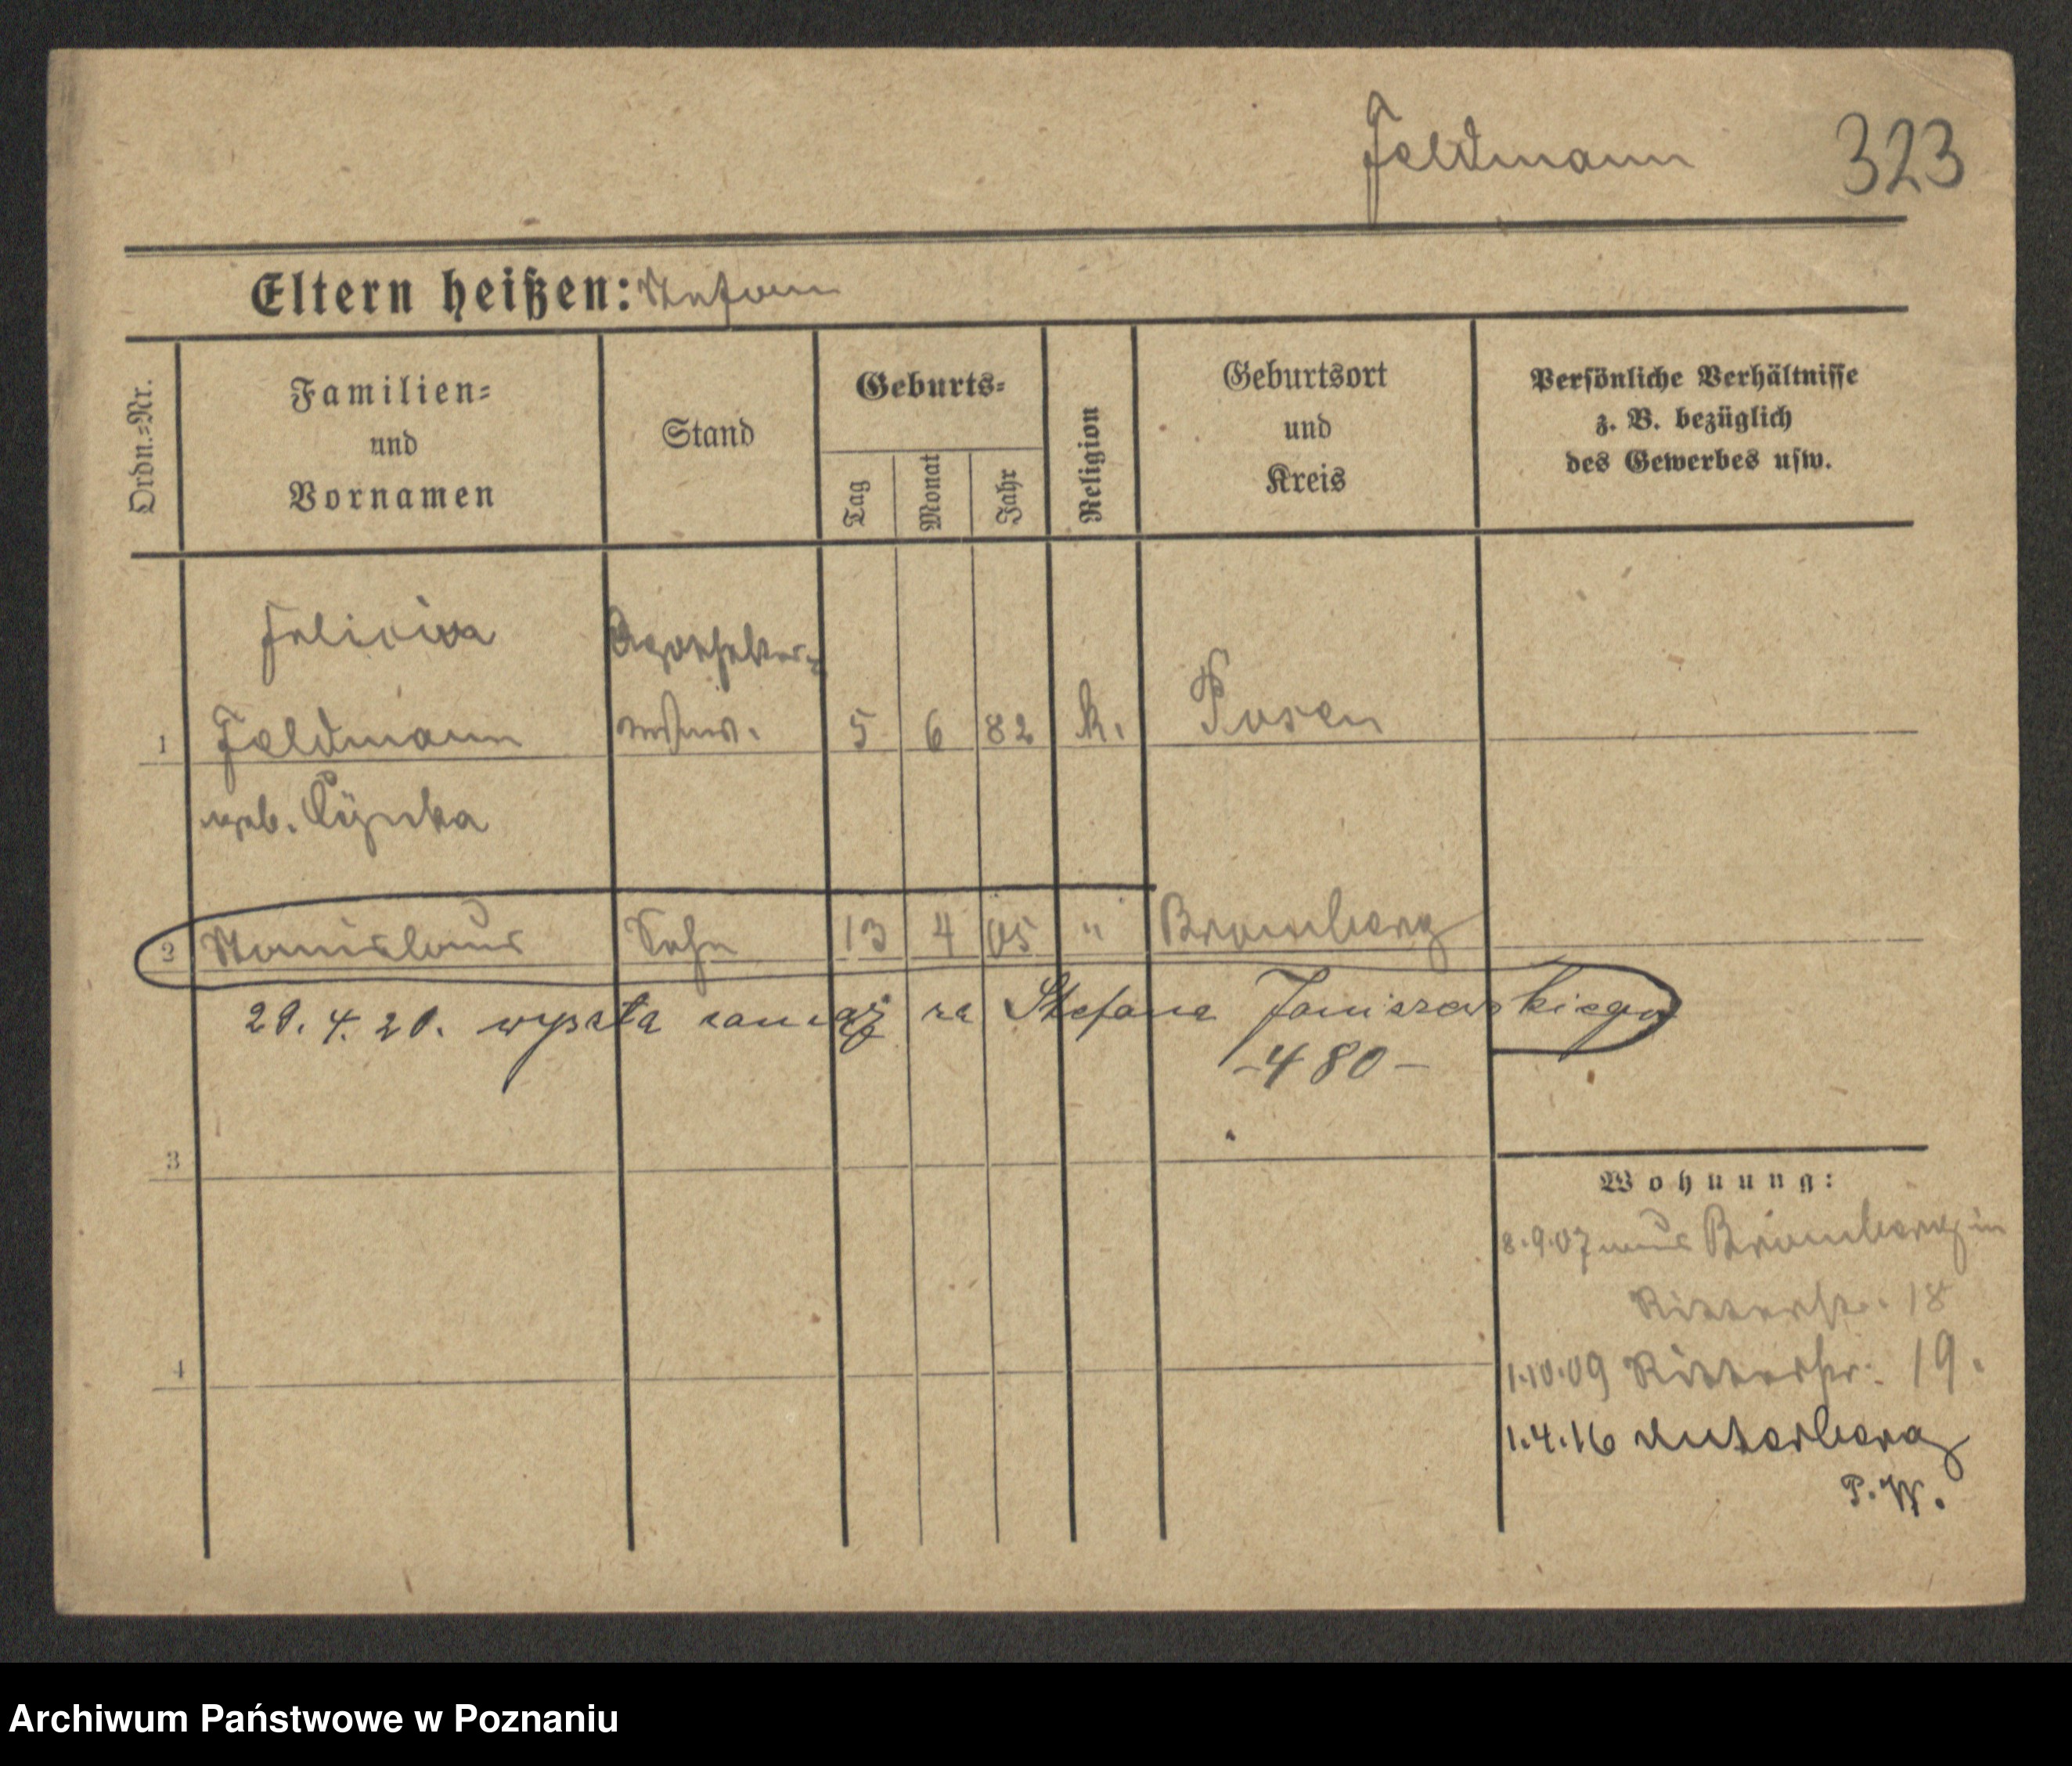 Feldmann 323
Eltern heißen: Stefan
Ordn.=Nr.
Familien=
und
Vornamen
Stand
Geburts=
Tag
Monat
Jahr
Religion
Geburtsort
und
Kreis
Persönliche Verhältnisse
z. B. bezüglich
des Gewerbes usw.
Felicia Apotheker=
1 Feldmann 5 6 82 k. Posen
geb.
2 Stanislaus Sohn 13 4 05 " Bromberg
29. 4. 20. wyszła zamąż za Stefana Janiszewskiego
- 480 -
3
4
Wohnung:
8.9.07 aus Bromberg in
Ritterstr. 18
1.10.09 Ritterstr. 19.
1.4.16 Unterberg
P.W.
Archiwum Państwowe w Poznaniu